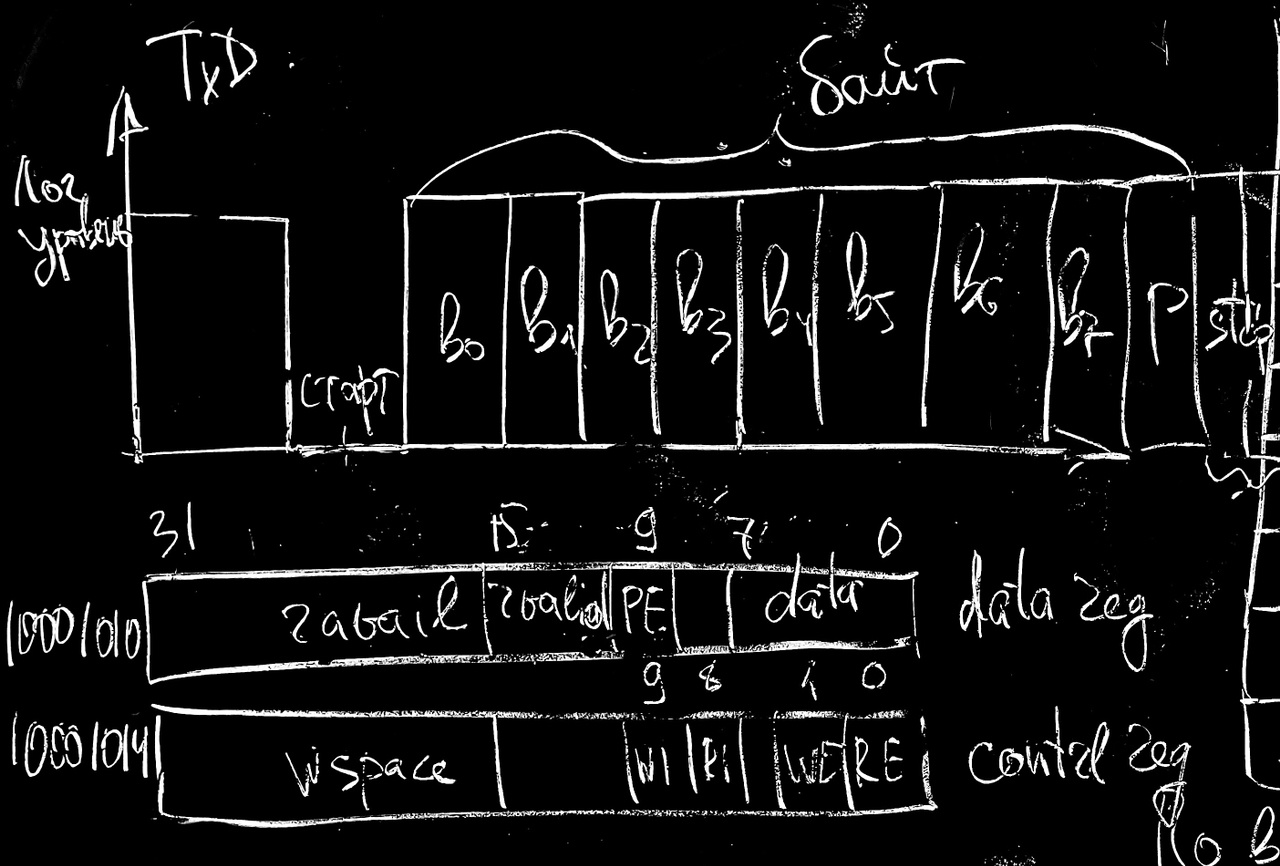 TxD
байт
Лог.
уровень
старт b0 b1 b2 b3 b4 b5 b6 b7 P stop
31 15 9 7 0
ravail rvalid PE data data reg
9 8 1 0
wspace WI RI WE RE contrl reg